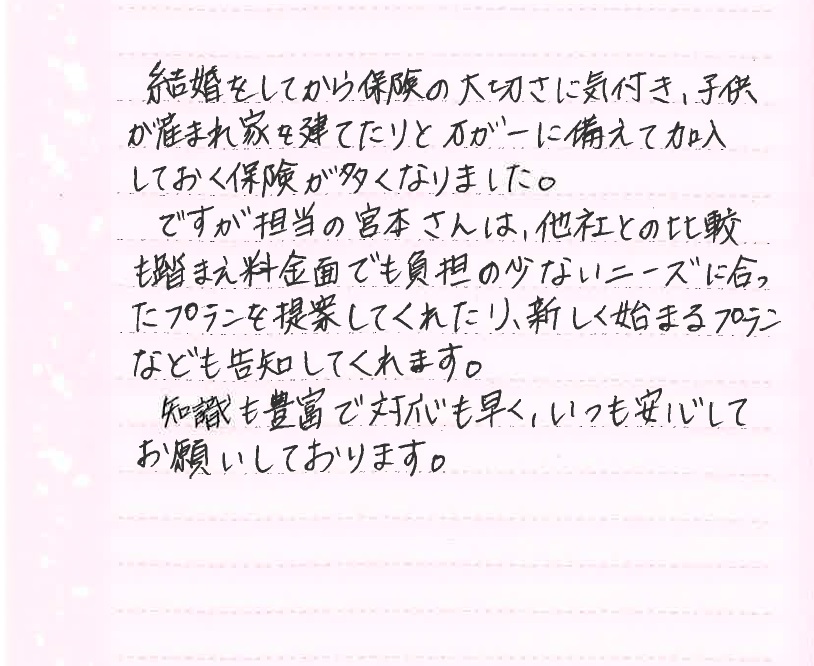 結婚をしてから保険の大切さに気付き、子供
が産まれ家を建てたりと万が一に備えて加入
しておく保険が多くなりました。
ですが担当の宮本さんは、他社との比較
も踏まえ料金面でも負担の少ないニーズに合っ
たプランを提案してくれたり、新しく始まるプラン
なども告知してくれます。
知識も豊富で対応も早く、いつも安心して
お願いしております。